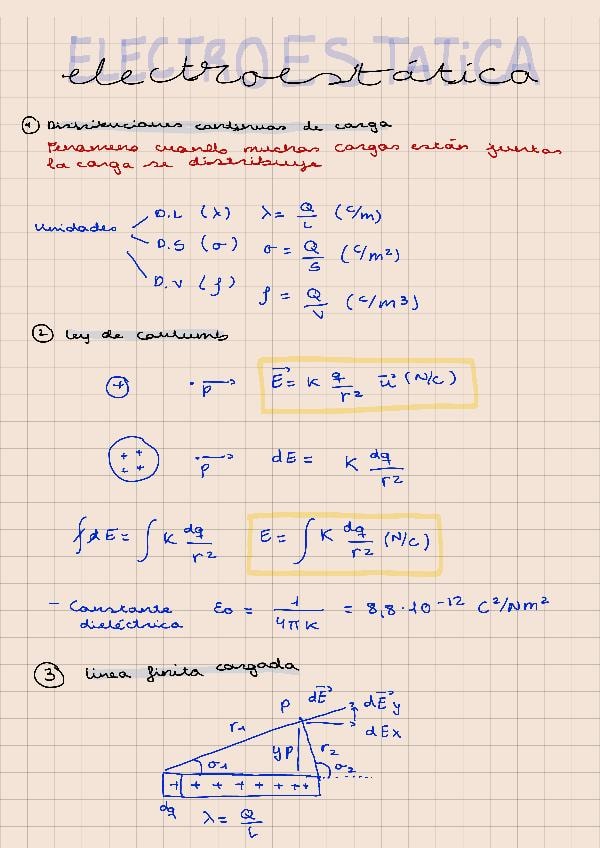 ELECTROESTATICA
electroestática
① Distribuciones continuas de carga
Fenomeno cuando muchas cargas están juntas
la carga se distribuye
Unidades
D.L (λ) λ = Q/L (C/m)
D.S (σ) σ = Q/S (C/m²)
D.V (ρ) ρ = Q/V (C/m3)
② Ley de coulumb
+ P E⃗ = K q/r² u⃗ (N/C)
+ + + + P dE = K dq/r²
∫dE = ∫ K dq/r² E = ∫ K dq/r² (N/C)
- Constante dieléctrica ε0 = 1/4πK = 8,8·10⁻¹² C²/Nm²
③ linea finita cargada
P dE⃗ dE⃗y
dEx
r1 yP r2
σ1 σ2
+ + + + + + + +
dq λ = Q/L